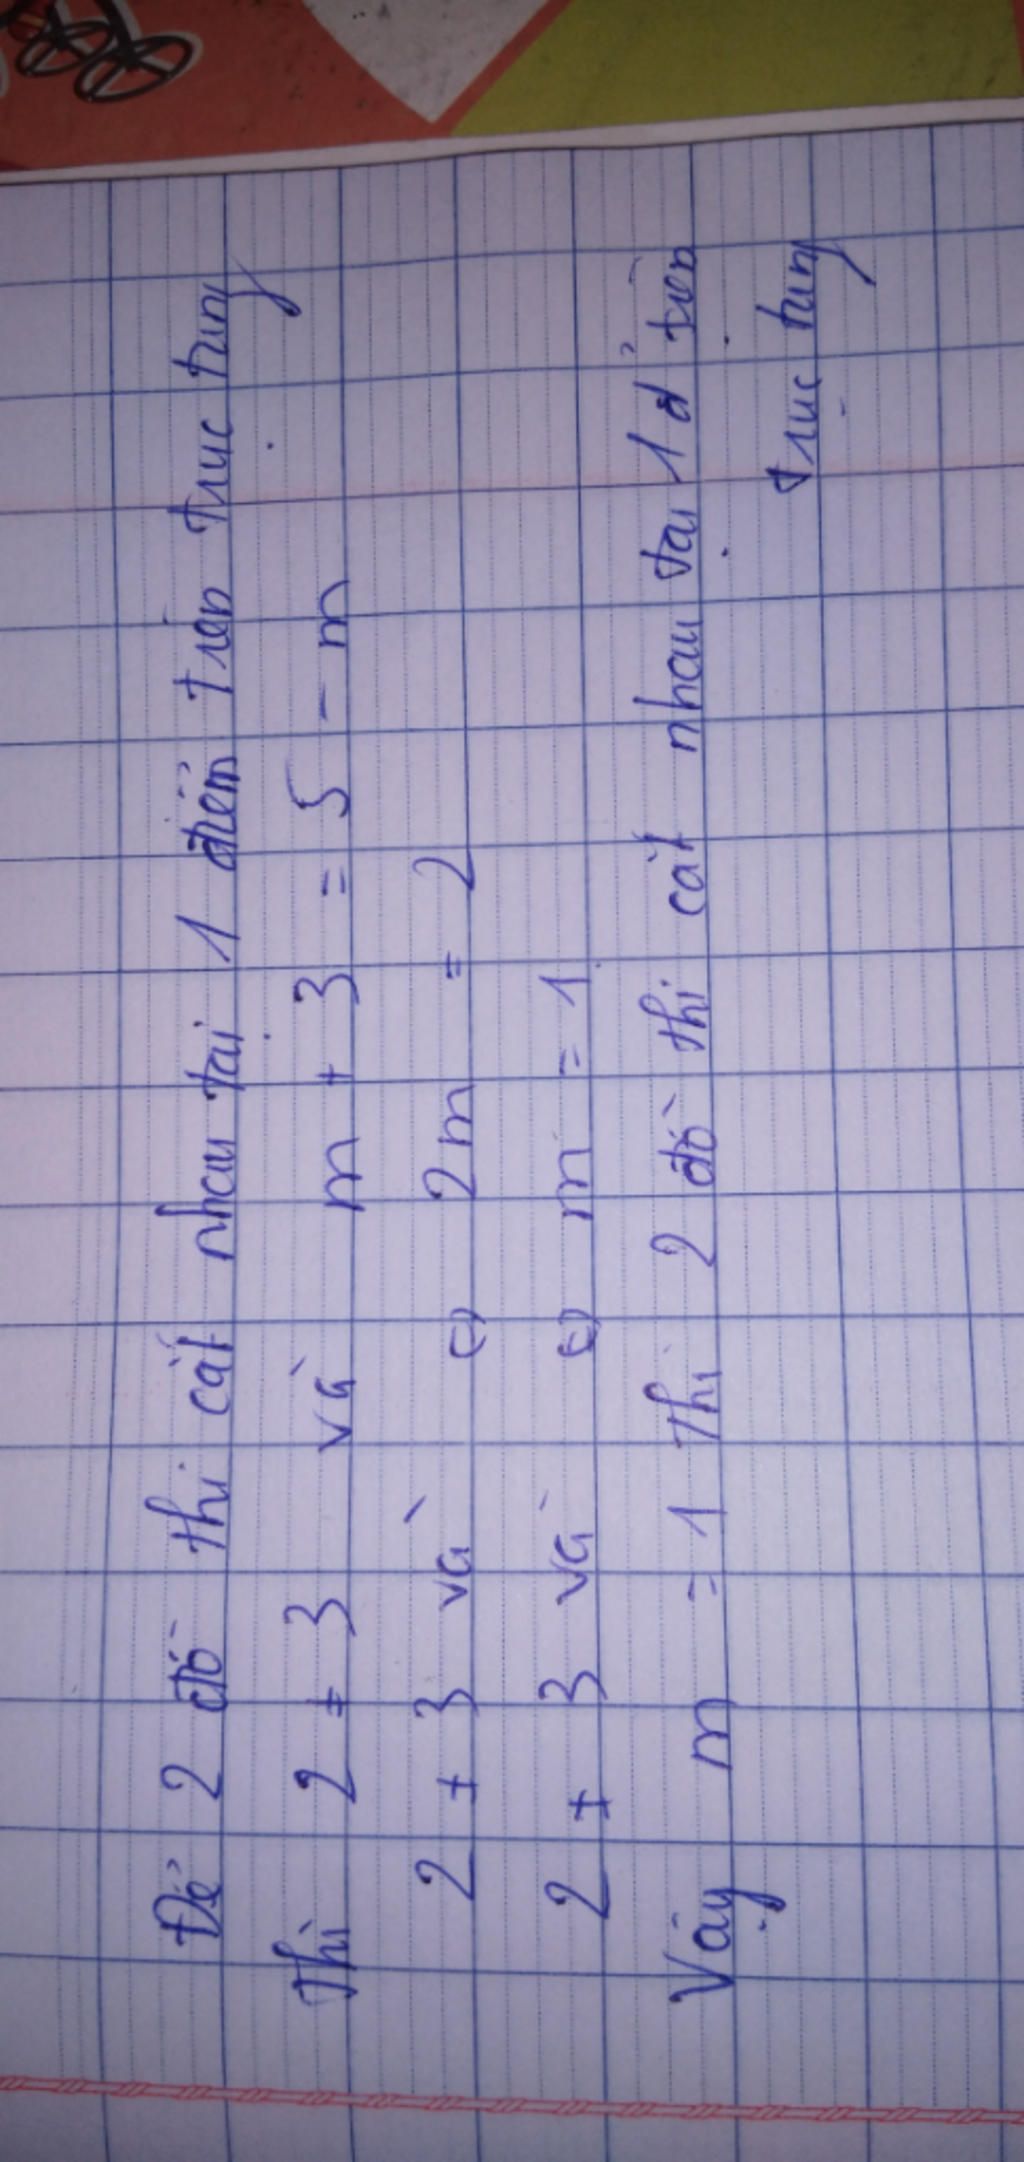 Để 2 đồ thị cắt nhau tại 1 điểm trên trục tung
thì 2 ≠ 3 và m + 3 = 5 - m
2 ≠ 3 và (=) 2m = 2
2 ≠ 3 và (=) m = 1
Vậy m = 1 thì 2 đồ thị cắt nhau tại 1 đ' trên
trục tung